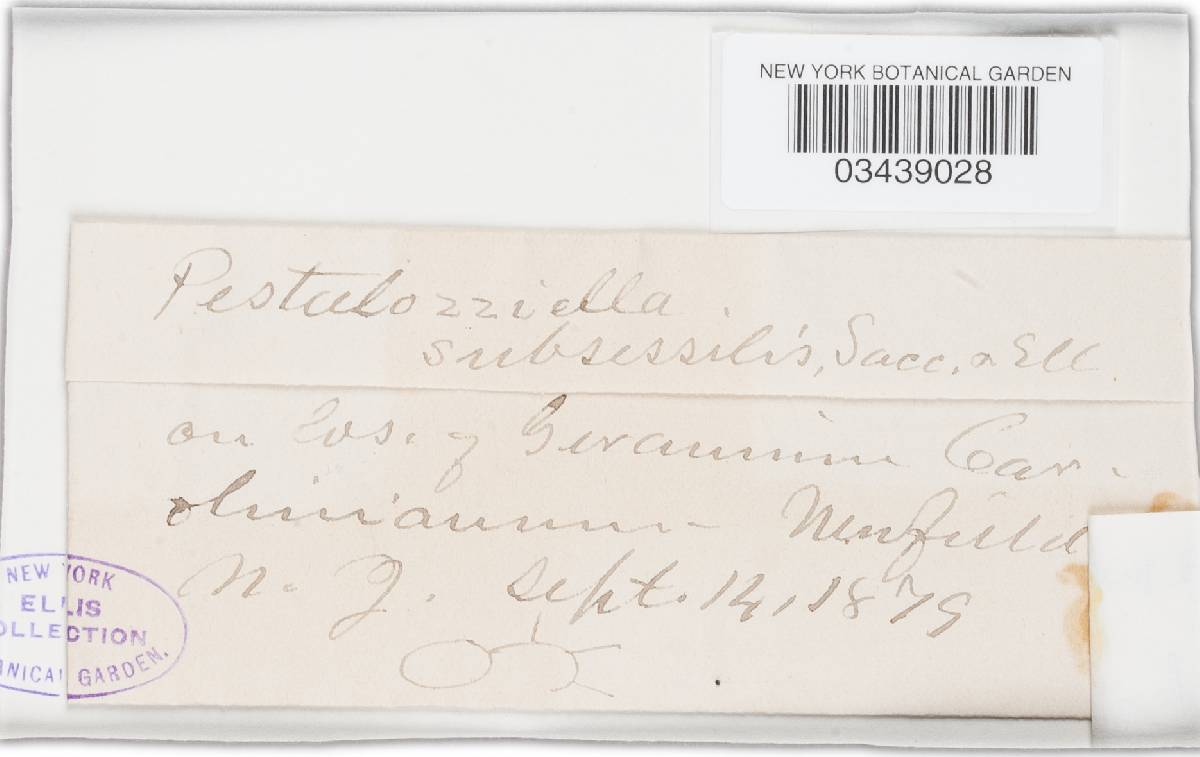 NEW YORK BOTANICAL GARDEN
03439028
Pestalozziella
subsessilis, Sacc. & Ell.
on lvs. of Geranium Car-
olinianum - Newfield
N. J. Sept. 14, 1879
NEW YORK
ELLIS
OLLECTION
NICAL GARDEN.